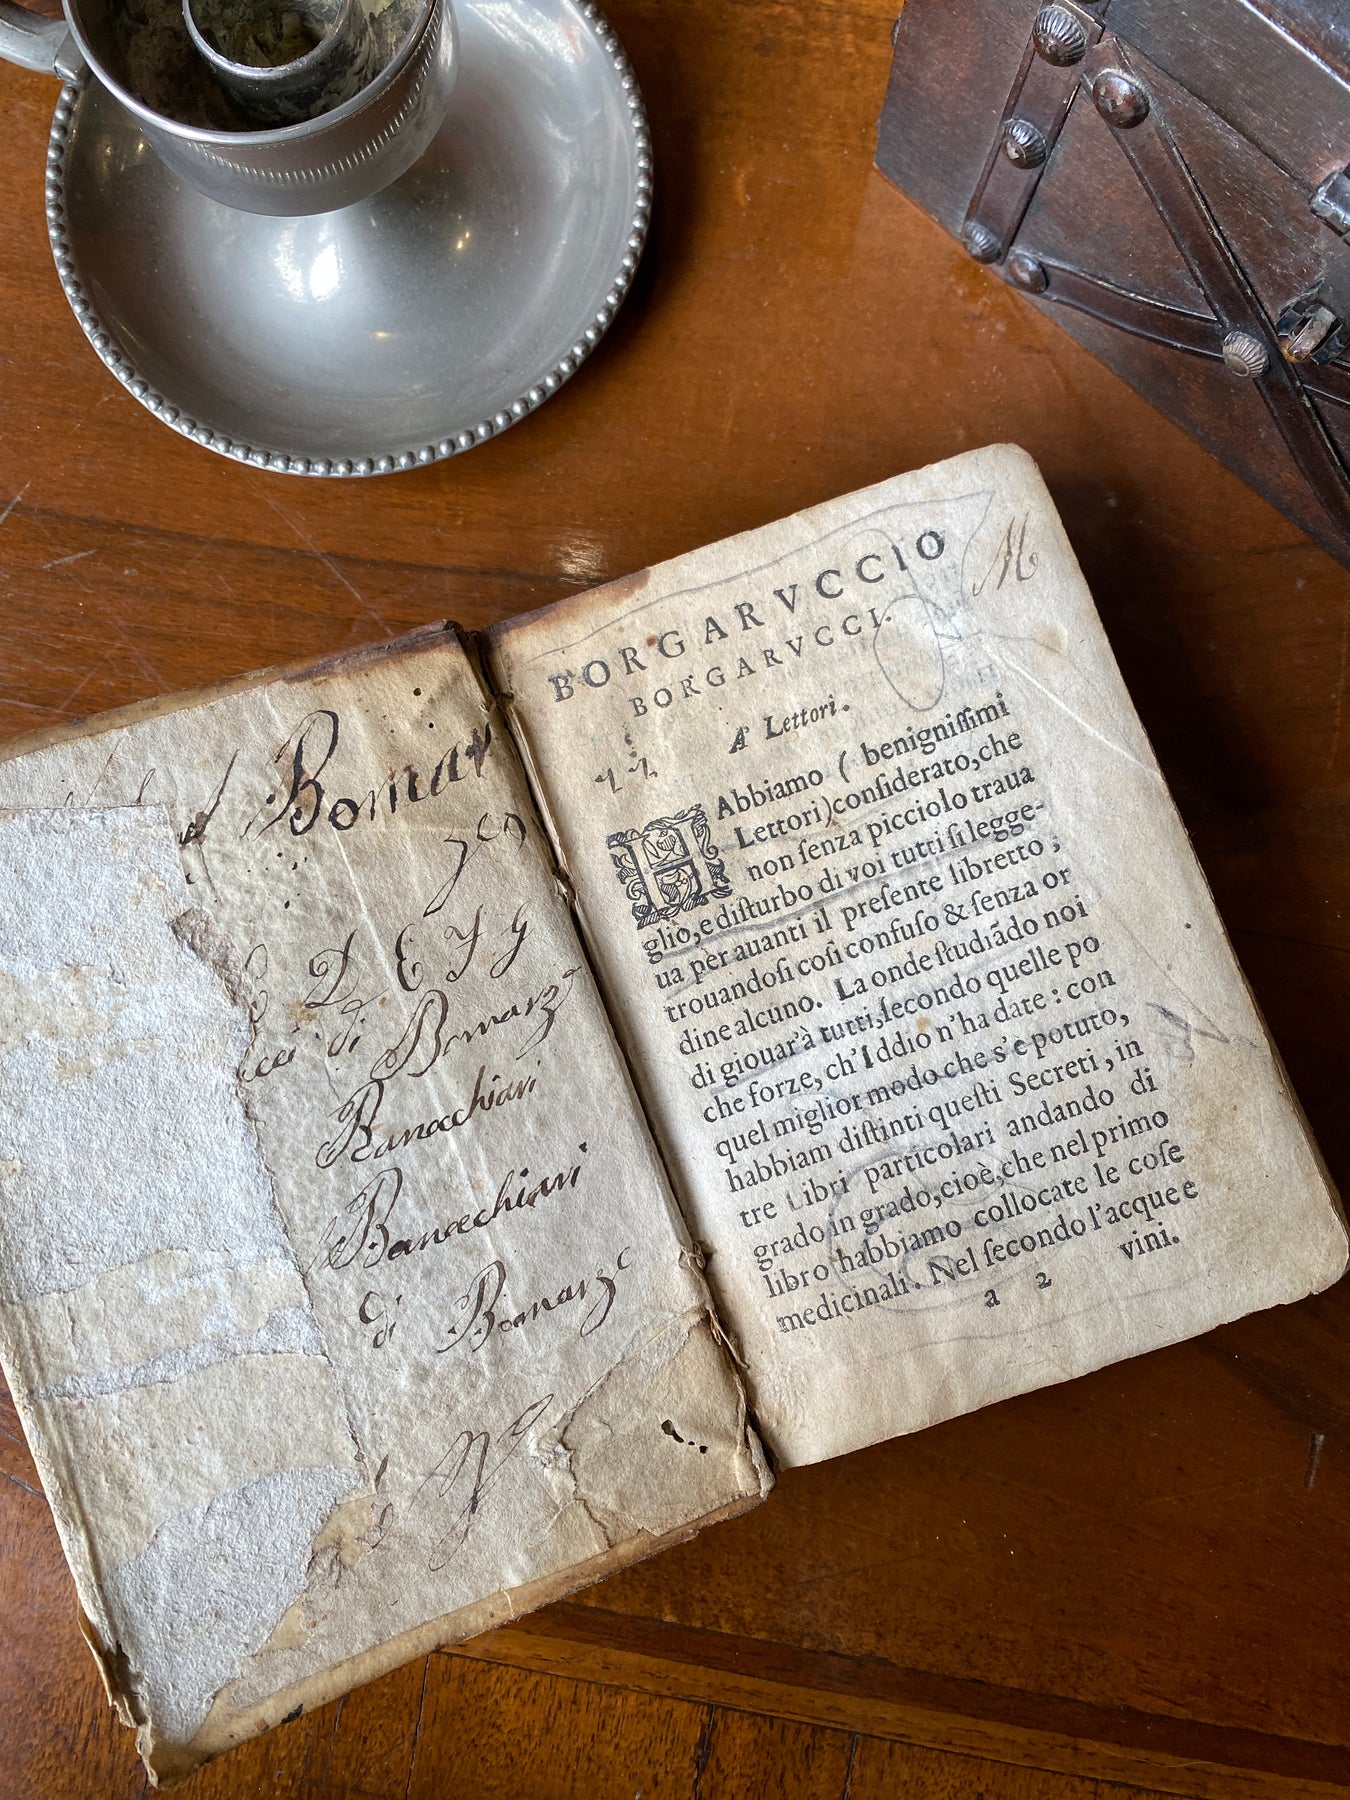 Bomar
zo
D E F g
di Bomarzo
Banacchiari
Banacchiari
di Bomarzo
M
BORGARVCCIO
BORGARVCCI.
A' Lettori.
HAbbiamo ( benigniſſimi
Lettori) conſiderato, che
non ſenza picciolo traua
glio, e diſturbo di voi tutti ſi legge-
ua per auanti il preſente libretto ;
trouandoſi coſi confuſo & ſenza or
dine alcuno. La onde ſtudiãdo noi
di giouar'à tutti, ſecondo quelle po
che forze, ch'Iddio n'ha date : con
quel miglior modo che s'e potuto,
habbiam diſtinti queſti Secreti, in
tre Libri particolari andando di
grado in grado, cioè, che nel primo
libro habbiamo collocate le coſe
medicinali. Nel ſecondo l'acque e
a 2 vini.